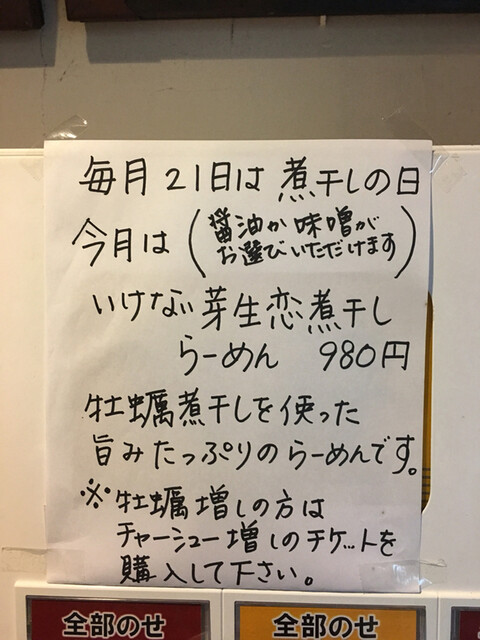 毎月21日は煮干しの日
今月は(醤油か味噌が
お選びいただけます)
いけない芽生恋煮干し
らーめん 980円
牡蠣煮干しを使った
旨みたっぷりのらーめんです。
※牡蠣増しの方は
チャーシュー増しのチケットを
購入して下さい。
全部のせ 全部のせ